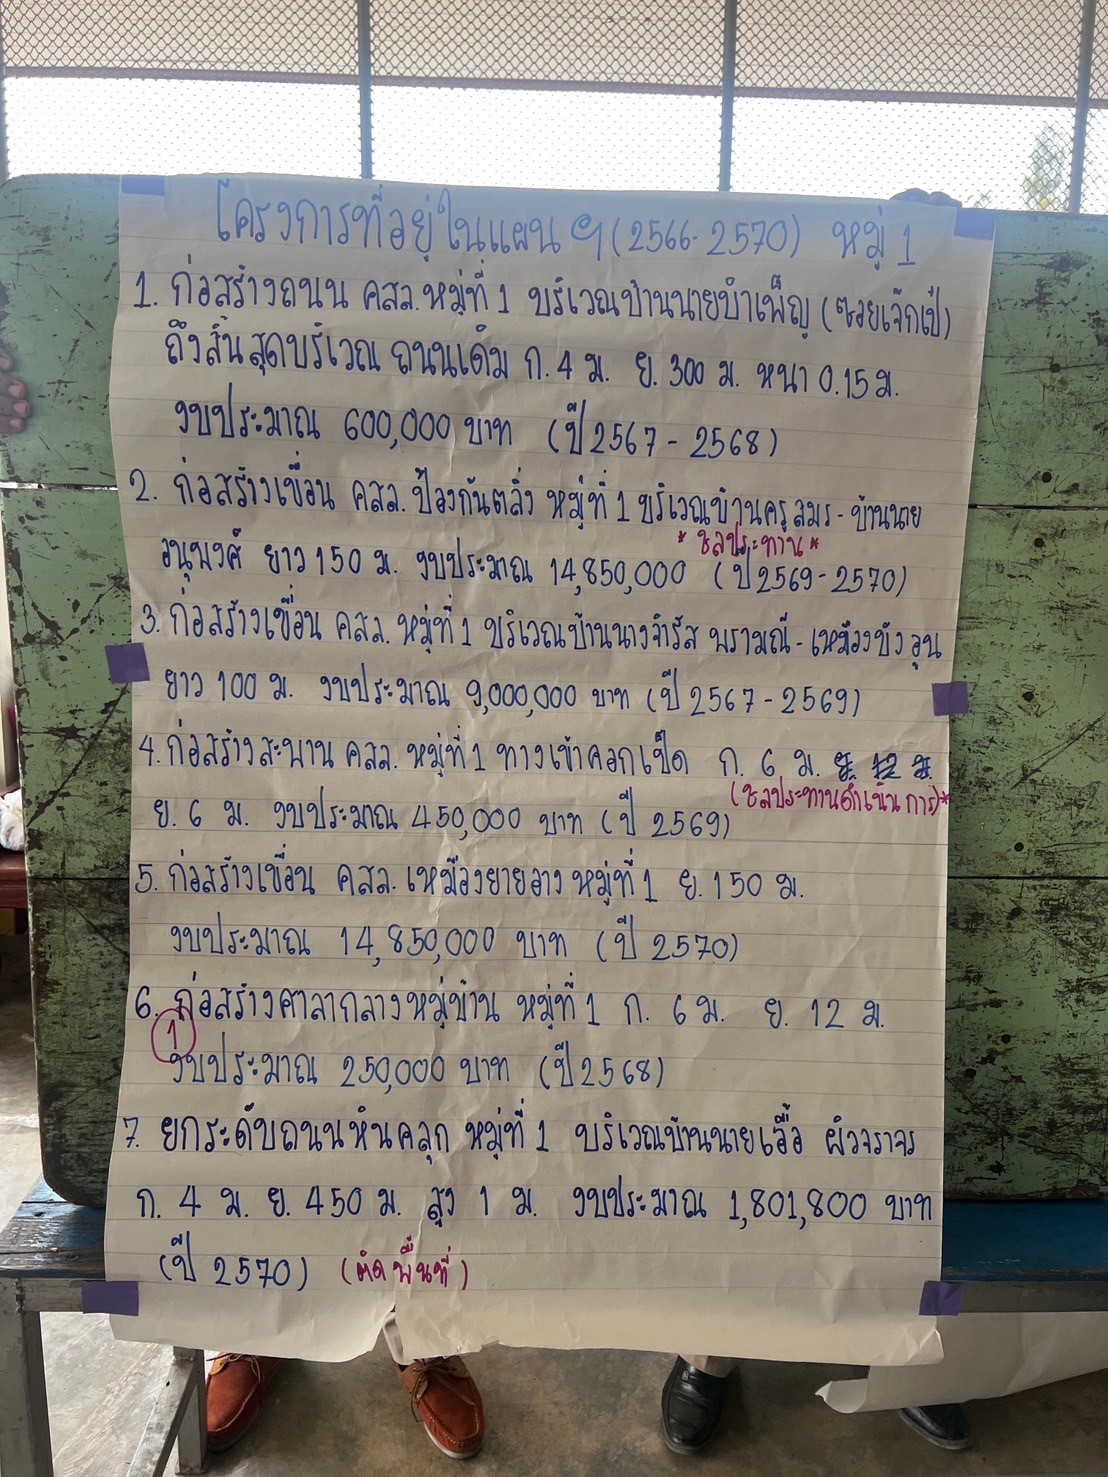 โครงการที่อยู่ในแผน ฯ (2566-2570) หมู่ 1
1. ก่อสร้างถนน คสล. หมู่ที่ 1 บริเวณบ้านนายบำเพ็ญ (ซอยเจ๊กเป้)
ถึงสิ้นสุดบริเวณ ถนนเดิม ก. 4 ม. ย. 300 ม. หนา 0.15 ม.
งบประมาณ 600,000 บาท (ปี 2567 - 2568)
2. ก่อสร้างเขื่อน คสล. ป้องกันตลิ่ง หมู่ที่ 1 บริเวณบ้านครูสมร - บ้านนาย
* ชลประทาน *
อนุพงศ์ ยาว 150 ม. งบประมาณ 14,850,000 (ปี 2569 - 2570)
3. ก่อสร้างเขื่อน คสล. หมู่ที่ 1 บริเวณบ้านนางจำรัส พรามณี - เหมืองบัง
ยาว 100 ม. งบประมาณ 9,000,000 บาท (ปี 2567 - 2569)
4. ก่อสร้างสะพาน คสล. หมู่ที่ 1 ทางเข้าคอกเป็ด ก. 6 ม. ย. 12 ม.
(ชลประทานดำเนินการ)*
ย. 6 ม. งบประมาณ 450,000 บาท (ปี 2569)
5. ก่อสร้างเขื่อน คสล. เหมืองยายอาง หมู่ที่ 1 ย. 150 ม.
งบประมาณ 14,850,000 บาท (ปี 2570)
6. ก่อสร้างศาลากลางหมู่บ้าน หมู่ที่ 1 ก. 6 ม. ย. 12 ม.
1
งบประมาณ 250,000 บาท (ปี 2568)
7. ยกระดับถนนหินคลุก หมู่ที่ 1 บริเวณบ้านนายเอื้อ ผิวจราจร
ก. 4 ม. ย. 450 ม. สูง 1 ม. งบประมาณ 1,801,800 บาท
(ปี 2570) (ติดพื้นที่)